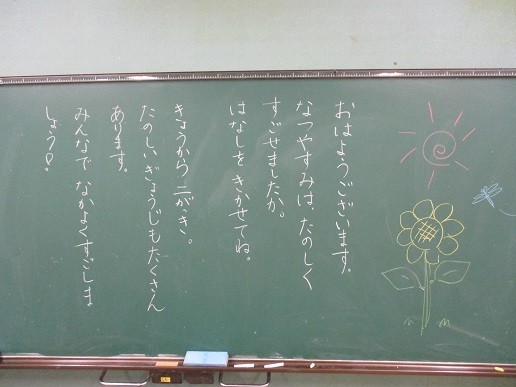 おはようございます。
なつやすみは、たのしく
すごせましたか。
はなしをきかせてね。
きょうから二がっき。
たのしいぎょうじもたくさん
あります。
みんなでなかよくすごしま
しょう!